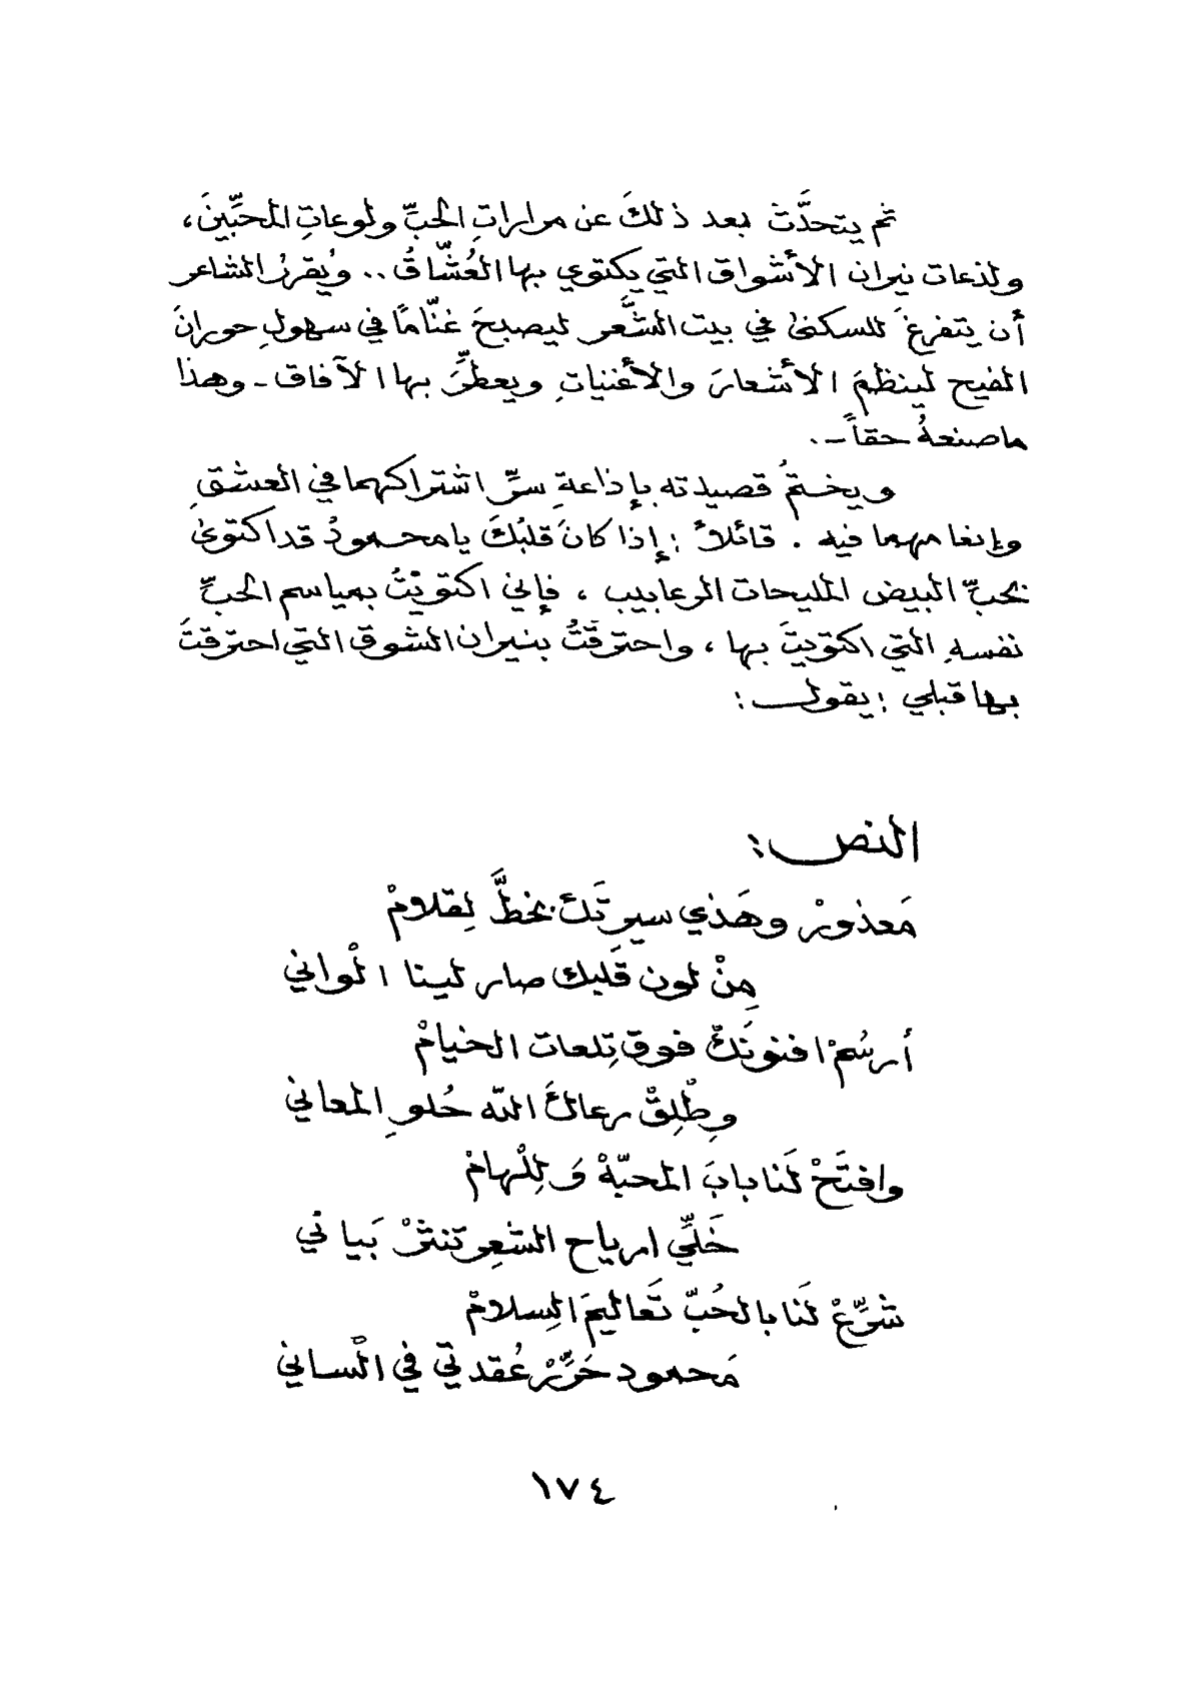 ثم يتحدَّث بعد ذلكَ عن مراراتِ الحبِّ ولوعاتِ المحبِّينَ،
ولذعات نيران الأشواق التي يكتوي بها العُشّاقُ .. ويُقررُ الشاعر
أن يتفرغَ للسكنىٰ في بيت الشَّعر ليصبحَ غنّاماً في سهولِ حورانَ
الفيح لينظمَ الأشعارَ والأغنياتِ ويعطرَِّ بها الآفاق - وهذا
ماصنعهُ حقاً - .
ويختمُ قصيدته بإذاعةِ سرِّ اشتراكهما في العشقِ
وإنغامهما فيه . قائلاً : إذا كانَ قلبُكَ يا محمودُ قد اكتوىٰ
بحبِّ البيض المليحات الرعابيب ، فإني اكتويْتُ بمياسم الحبِّ
نفسهِ التي اكتويتَ بها ، واحترقْتُ بنيران الشوق التي احترقتَ
بها قبلي : يقول :
النص :
مَعذورْ وهَذي سيرِتَك بخطَّ لِقلامْ
مِنْ لون قَلبك صار لينا الْواني
أرسُمْ افنونَكْ فوق تِلعات الخيامْ
وِطْلِقْ رعاكَ الله حُلوِ المعاني
وافتَحْ لَنا بابَ المحبّهْ وَلِلْهامْ
خَلِّي ارياح الشعِر تنثرْ بَياني
شرِّعْ لَنا بالحُبّ تَعاليمَ الِسلامْ
مَحمود حَرِّرْ عُقدتي في الْساني
١٧٤